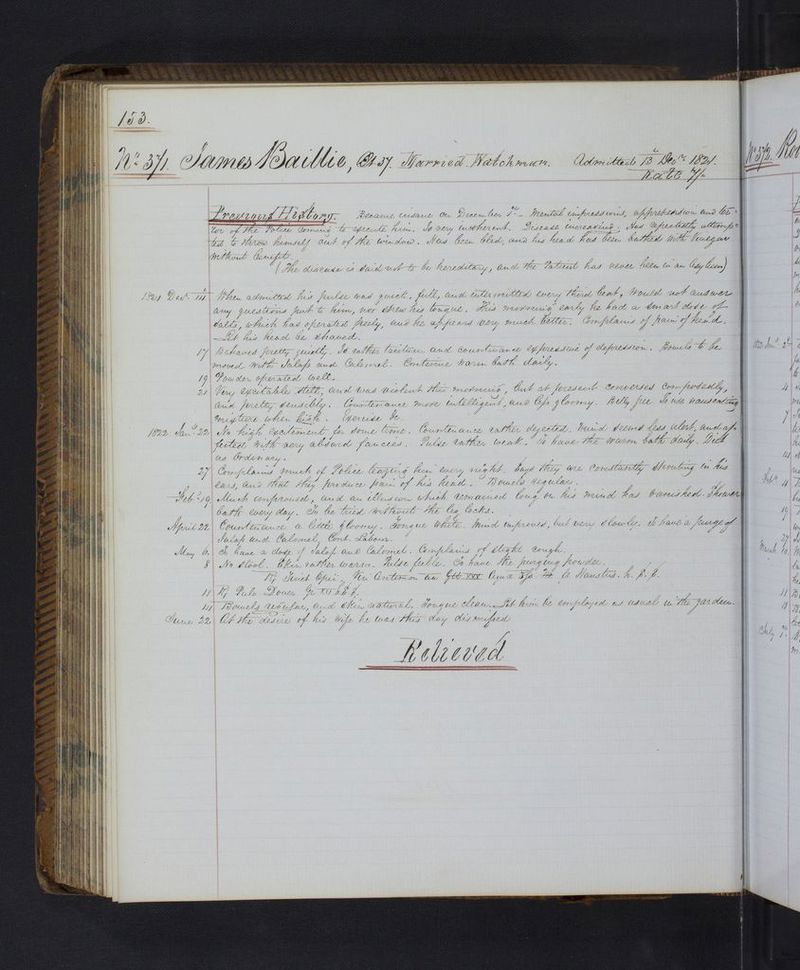 153.
No. 371 James Baillie, Æt 37. Married. Watchman. Admitted 13 Decr. 1821.
Rate 7/-
Previous History. Became insane on December 5th - Mental impressions, apprehension and ter-
ror of the Police coming to execute him. Is very incoherent. Disease increasing. Has repeatedly attemp-
ted to throw himself out of the window. Has been bled, and his head has been bathed with vinegar
without benefit.
(The disease is said not to be hereditary, and the Patient has never been in an Asylum)
1821 Decr. 14 When admitted his pulse was quick, full, and intermitted every third beat, would not answer
any questions put to him, nor shew his tongue. This morning early he had a smart dose of
salts, which has operated freely, and he appears very much better. Complains of pain of head.
- Let his head be shaved.
17 Behaves pretty quietly. Is rather taciturn and countenance expressive of depression. Bowels to be
moved with Jalap and Calomel. Continue warm bath daily.
19 Powder operated well.
21 Very excitable still, and was violent this morning, but at present converses composedly,
and pretty sensibly. Countenance more intelligent, and less gloomy. Belly free. To use nauseating
mixture when high. Exercise &c
1822 Jany. 22 No high excitement for some time. Countenance rather dejected. Mind seems less alert, and af-
fected with very absurd fancies. Pulse rather weak. To have the warm bath daily. Diet
as Ordinary.
27 Complains much of Police teazing him every night. Says they are constantly shouting in his
ears, and that they produce pain of his head. Bowels regular.
Feby. 19 Much improved, and an illusion which remained long on his mind has vanished. Shower
bath every day. To be tried without the leg locks.
April 22 Countenance a little gloomy. Tongue white. Mind improves, but very slowly. To have a purge of
Jalap and Calomel, Cont. Labour.
May 6. To have a dose of Jalap and Calomel. Complains of slight cough.
8 No stool. Skin rather warm. Pulse feeble. To have the purging powder.
℞ Tinct Opii, Vin Antimon aa Gtt. xxx Aqua ft Haustus. h. s. s.
11 ℞ Pulv Dover Gr
14 Bowels regular, and skin natural. Tongue clean. Let him be employed as usual in the garden.
June 22 At the desire of his wife he was this day dismissed
Relieved
No 372